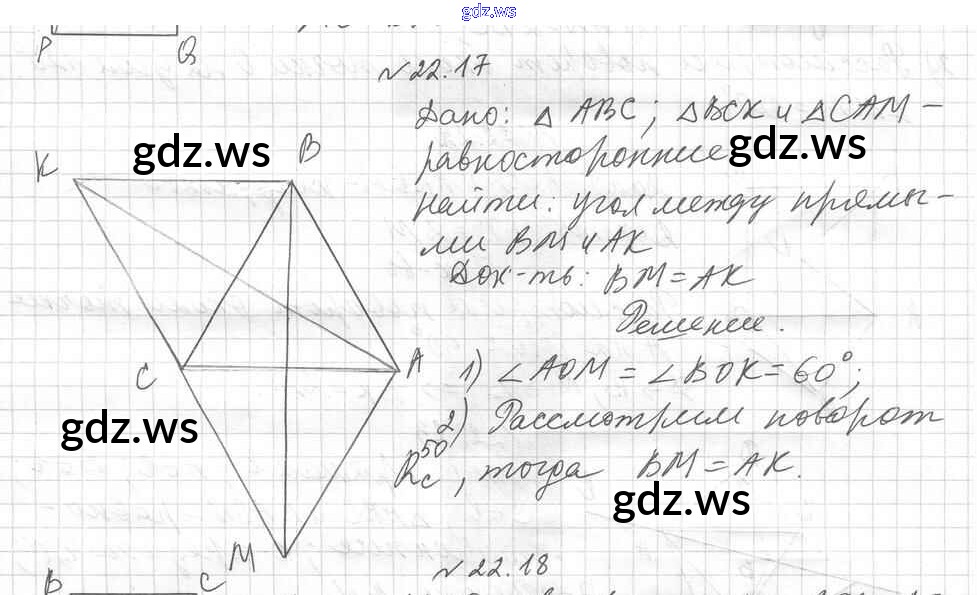 gdz.ws
P Q
№22.17
Дано: △ ABC; △BCK и △CAM –
равносторонние
Найти: угол между прямы-
ми BM и AK
Док-ть: BM = AK
Решение.
1) ∠AOM = ∠BOK = 60°;
2) Рассмотрим поворот
R_C^50, тогда BM = AK.
K B
C A
M
gdz.ws
gdz.ws
gdz.ws
gdz.ws
№22.18
B C